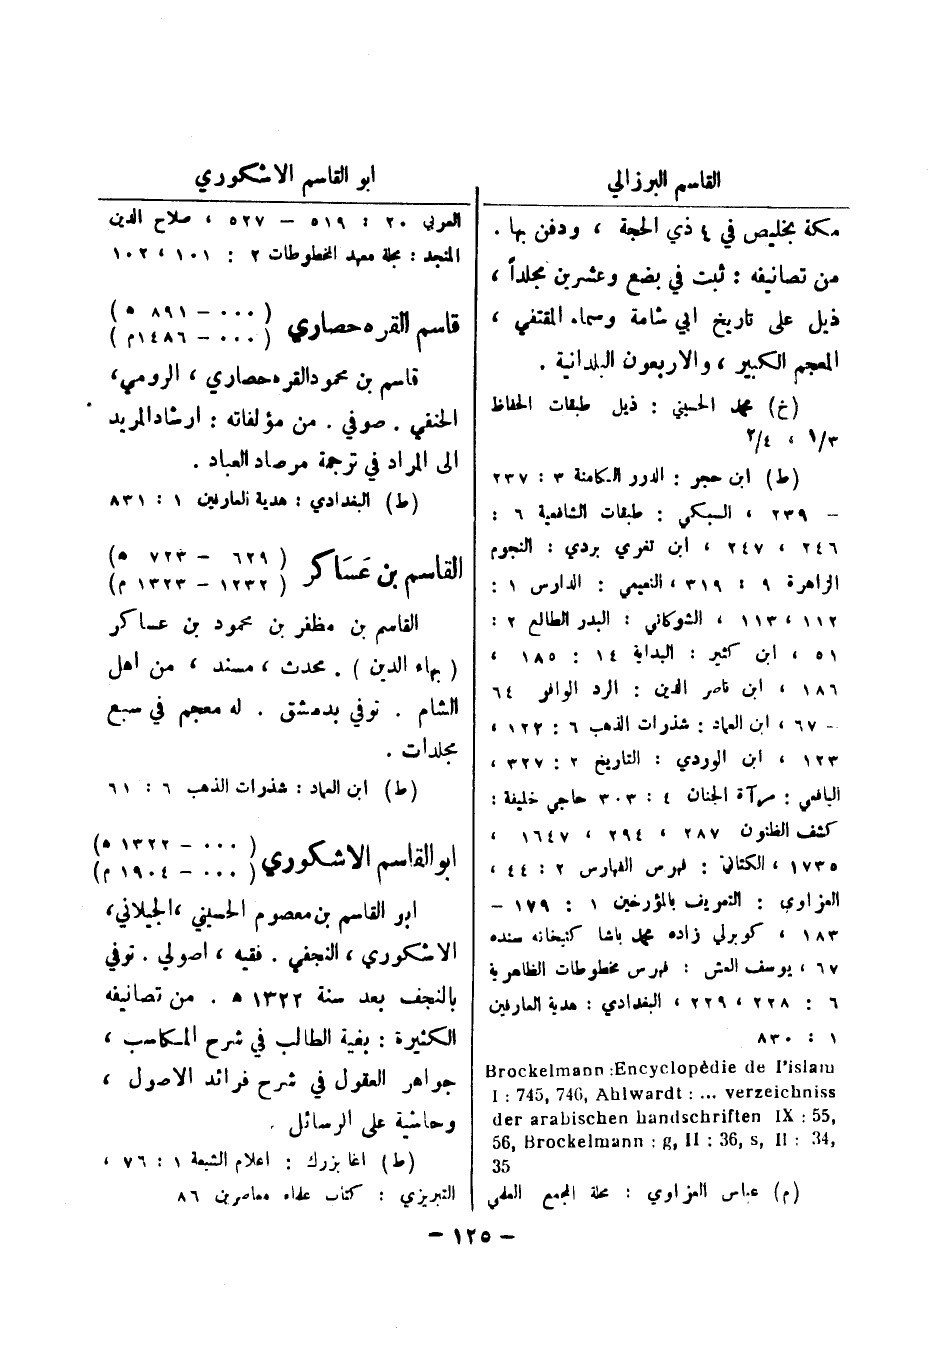 القاسم البرزالي
مكة بخليص في ٤ ذي الحجة ، ودفن بها .
من تصانيفه : ثبت في بضع وعشرين مجلداً ،
ذيل على تاريخ ابي شامة وسماه المقتفي ،
المعجم الكبير ، والاربعون البلدانية .
(خ) محمد الحسيني : ذيل طبقات الحفاظ
١/٣ ، ٢/٤
(ط) ابن حجر : الدرر الكامنة ٣ : ٢٣٧
– ٢٣٩ ، السبكي : طبقات الشافعية ٦ :
٢٤٦ ، ٢٤٧ ، ابن تغري بردي : النجوم
الزاهرة ٩ : ٣١٩ ، النعيمي : الدارس ١ :
١١٢ ، ١١٣ ، الشوكاني : البدر الطالع ٢ :
٥١ ، ابن كثير : البداية ١٤ : ١٨٥ ،
١٨٦ ، ابن ناصر الدين : الرد الوافر ٦٤
– ٦٧ ، ابن العماد : شذرات الذهب ٦ : ١٢٢ ،
١٢٣ ، ابن الوردي : التاريخ ٢ : ٣٢٧ ،
اليافعي : مرآة الجنان ٤ : ٣٠٣ حاجي خليفة :
كشف الظنون ٢٨٧ ، ٢٩٤ ، ١٦٤٧ ،
١٧٣٥ ، الكتاني : فهرس الفهارس ٢ : ٤٤ ،
العزاوي : التعريف بالمؤرخين ١ : ١٧٩ –
١٨٣ ، كوبرلي زاده محمد باشا كتبخانه سنده
٦٧ ، يوسف العش : فهرس مخطوطات الظاهرية
٦ : ٢٢٨ ، ٢٢٩ ، البغدادي : هدية العارفين
١ : ٨٣٠
Brockelmann :Encyclopédie de l'islam
I : 745, 746, Ahlwardt : ... verzeichniss
der arabischen handschriften IX : 55,
56, Brockelmann : g, II : 36, s, II : 34,
35
(م) عباس العزاوي : مجلة المجمع العلمي
ابو القاسم الاشكوري
العربي ٢٠ : ٥١٩ – ٥٢٧ ، صلاح الدين
المنجد : مجلة معهد المخطوطات ٢ : ١٠١ ، ١٠٢
قاسم القره حصاري (٠٠٠ – ٨٩١ ه)
(٠٠٠ – ١٤٨٦ م)
قاسم بن محمود القره حصاري ، الرومي ،
الحنفي . صوفي . من مؤلفاته : ارشاد المريد
الى المراد في ترجمة مرصاد العباد .
(ط) البغدادي : هدية العارفين ١ : ٨٣١
القاسم بن عَسَاكر (٦٢٩ – ٧٢٣ ه)
(١٢٣٢ – ١٣٢٣ م)
القاسم بن مظفر بن محمود بن عساكر
( بهاء الدين ) . محدث ، مسند ، من اهل
الشام . توفي بدمشق . له معجم في سبع
مجلدات .
(ط) ابن العماد : شذرات الذهب ٦ : ٦١
ابو القاسم الاشكوري (٠٠٠ – ١٣٢٢ ه)
(٠٠٠ – ١٩٠٤ م)
ابو القاسم بن معصوم الحسيني ، الجيلاني ،
الاشكوري ، النجفي . فقيه ، اصولي . توفي
بالنجف بعد سنة ١٣٢٢ ه . من تصانيفه
الكثيرة : بغية الطالب في شرح المكاسب ،
جواهر العقول في شرح فرائد الاصول ،
وحاشية على الرسائل .
(ط) اغا بزرك : اعلام الشيعة ١ : ٧٦ ،
التبريزي : كتاب علماء معاصرين ٨٦
– ١٢٥ –